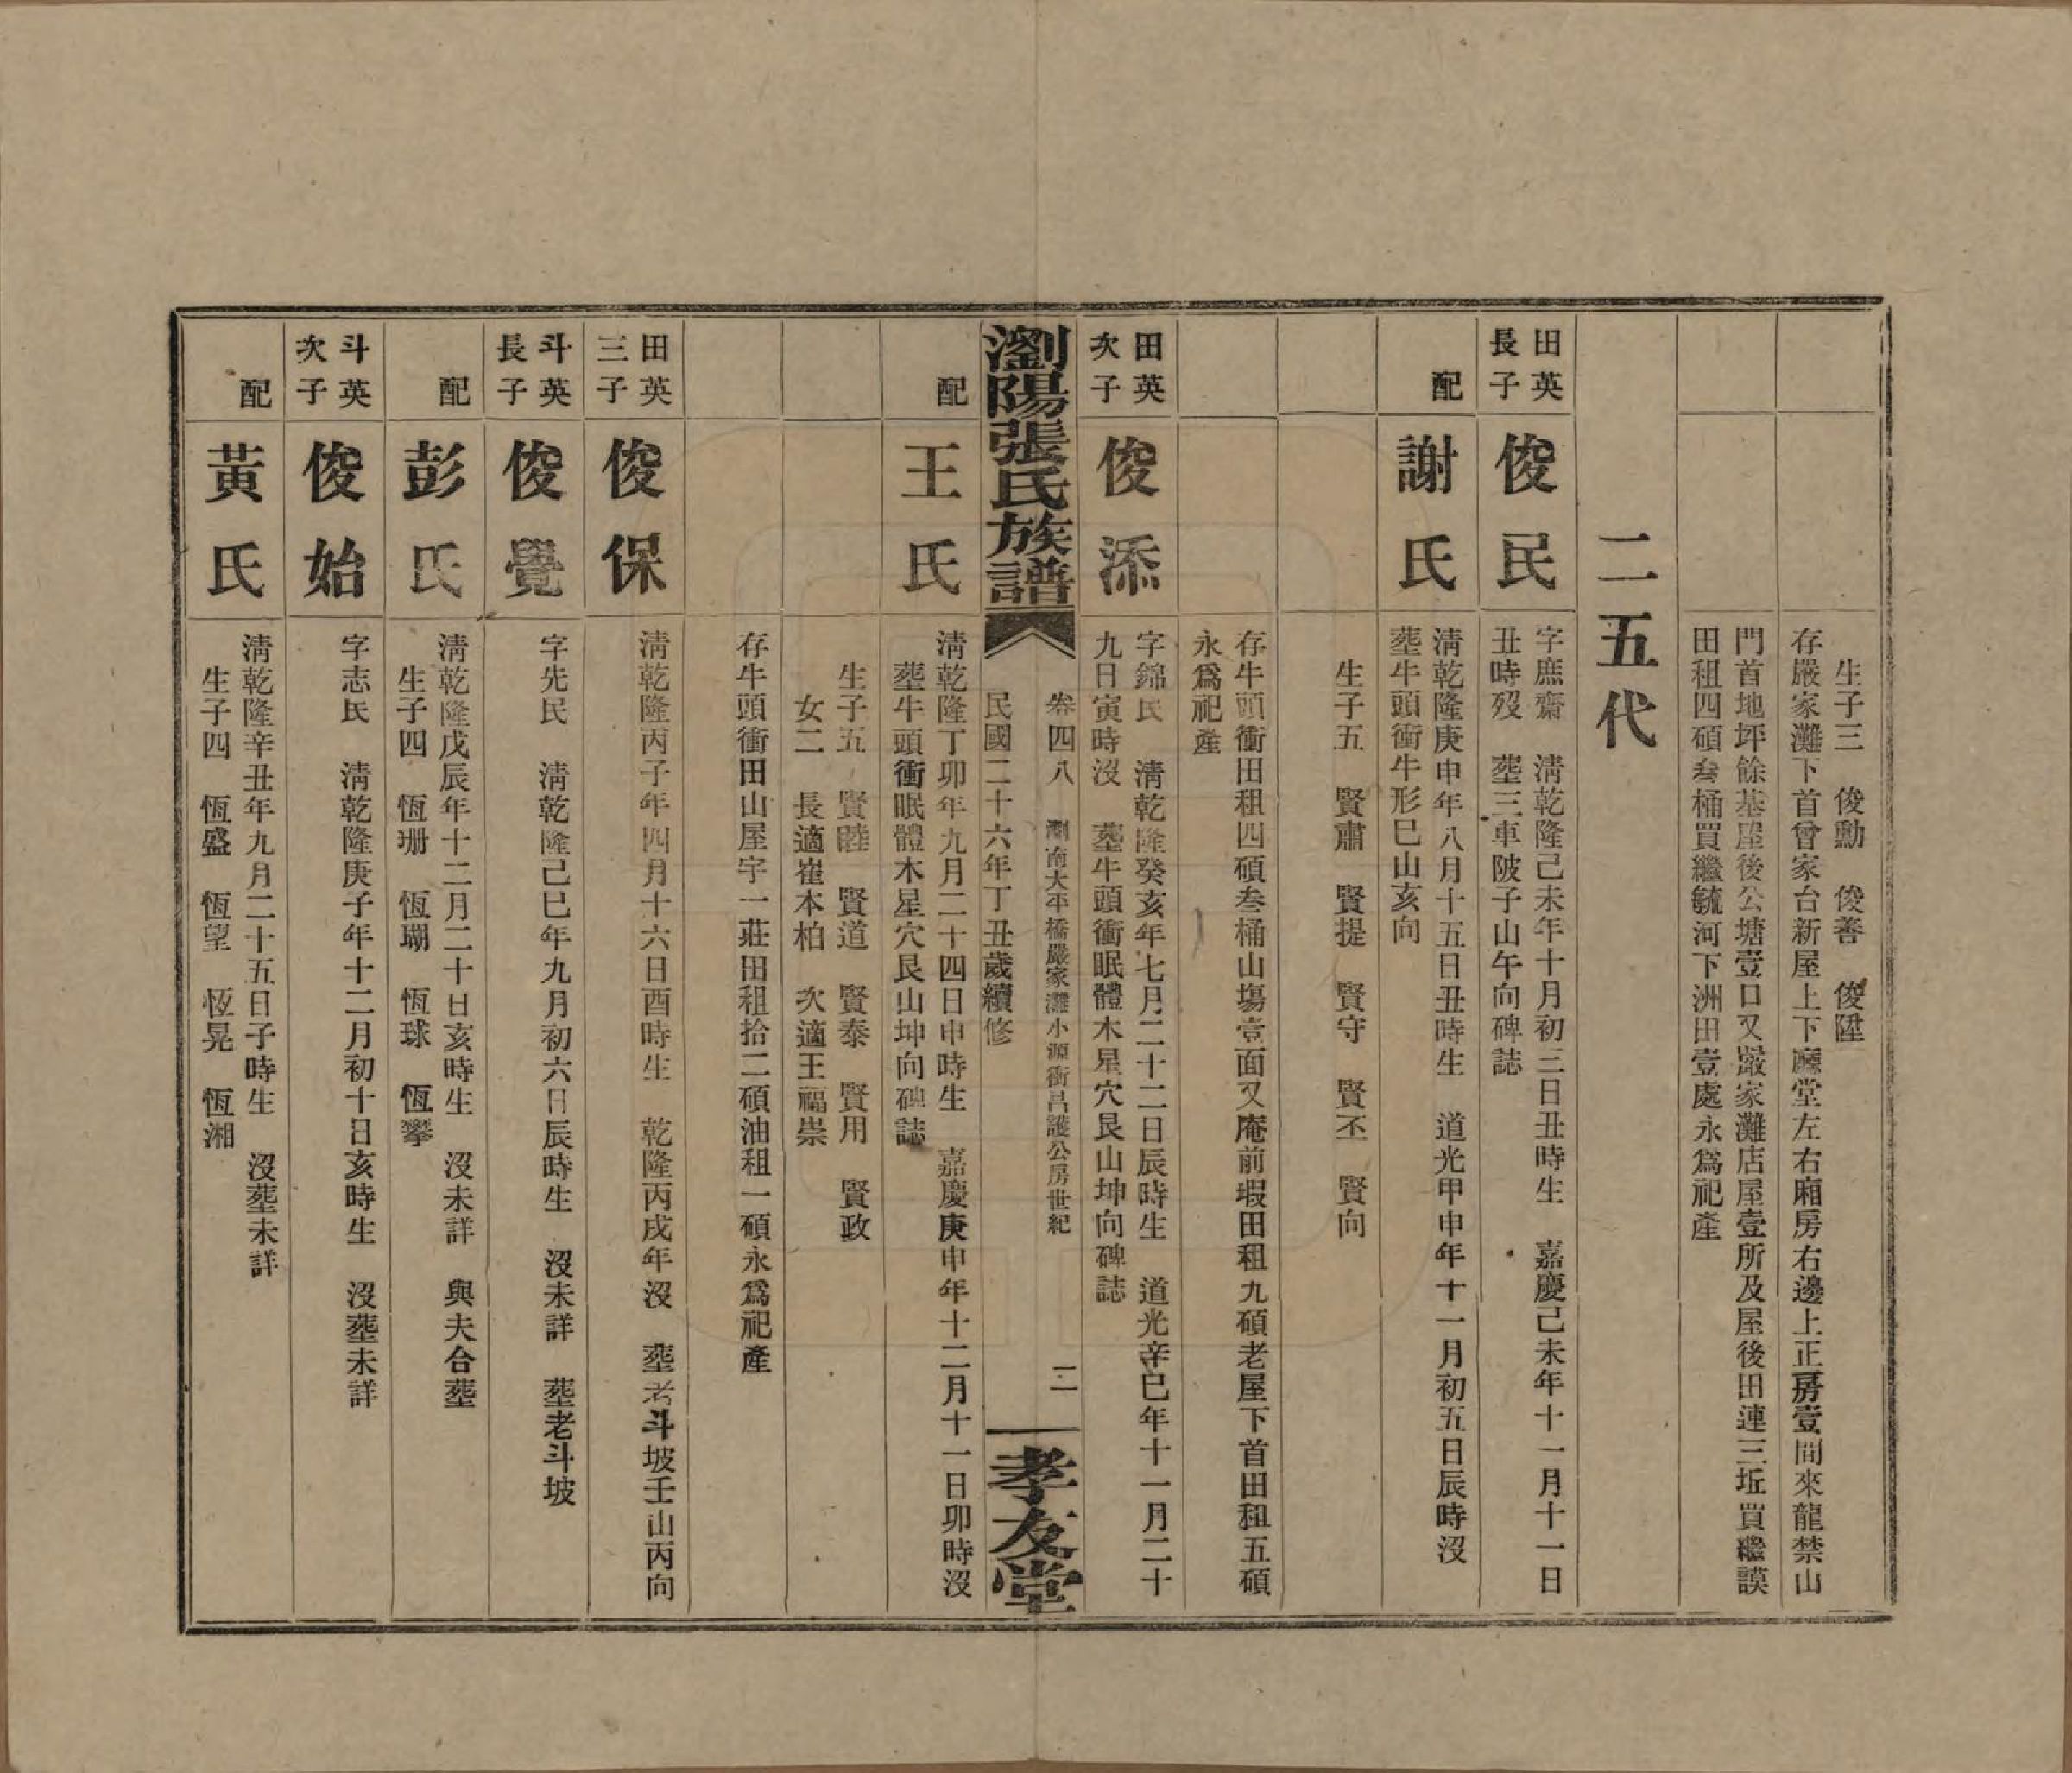 生子三　俊勳　俊善　俊陞
存嚴家灘下首曾家台新屋上下廳堂左右廂房右邊上正房壹間來龍禁山
門首地坪餘基屋後公塘壹口又嚴家灘店屋壹所及屋後田連三坵買繼謨
田租四碩叁桶買繼毓河下洲田壹處永爲祀產
二五代
田英長子
俊民
字庶齋　淸乾隆己未年十月初三日丑時生　嘉慶己未年十一月十一日
丑時歿　塟三車陂子山午向碑誌
配
謝氏
淸乾隆庚申年八月十五日丑時生　道光甲申年十一月初五日辰時沒
塟牛頭衝牛形巳山亥向
生子五　賢肅　賢提　賢守　賢丕　賢向
存牛頭衝田租四碩叁桶山塲壹面又庵前塅田租九碩老屋下首田租五碩
永爲祀產
田英次子
俊添
字錦民　淸乾隆癸亥年七月二十二日辰時生　道光辛巳年十一月二十
九日寅時沒　塟牛頭衝眠體木星穴艮山坤向碑誌
瀏陽張氏族譜
卷四八　瀏南大平橋嚴家灘小源衝呂護公房世紀　二
民國二十六年丁丑歲續修
孝友堂
配
王氏
淸乾隆丁卯年九月二十四日申時生　嘉慶庚申年十二月十一日卯時沒
塟牛頭衝眠體木星穴艮山坤向碑誌
生子五　賢睦　賢道　賢泰　賢用　賢政
女二　長適崔本柏　次適王福崇
存牛頭衝田山屋宇一莊田租拾二碩油租一碩永爲祀產
田英三子
俊保
淸乾隆丙子年四月十六日酉時生　乾隆丙戌年沒　塟老斗坡壬山丙向
斗英長子
俊覺
字先民　淸乾隆己巳年九月初六日辰時生　沒未詳　塟老斗坡
配
彭氏
淸乾隆戊辰年十二月二十日亥時生　沒未詳　與夫合塟
生子四　恆珊　恆瑚　恆球　恆攀
斗英次子
俊始
字志民　淸乾隆庚子年十二月初十日亥時生　沒塟未詳
配
黃氏
淸乾隆辛丑年九月二十五日子時生　沒塟未詳
生子四　恆盛　恆望　恆晃　恆湘